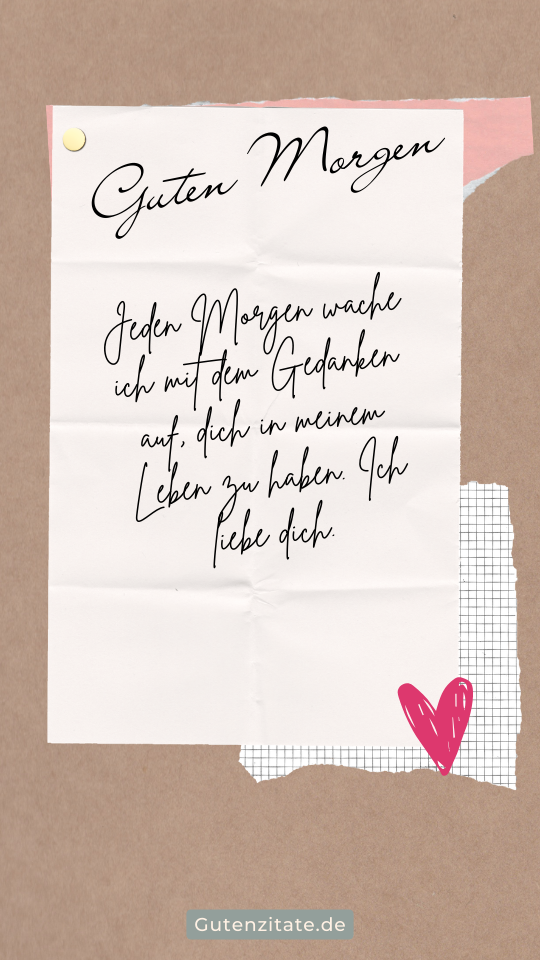 Guten Morgen
Jeden Morgen wache
ich mit dem Gedanken
auf, dich in meinem
Leben zu haben. Ich
liebe dich.
Gutenzitate.de